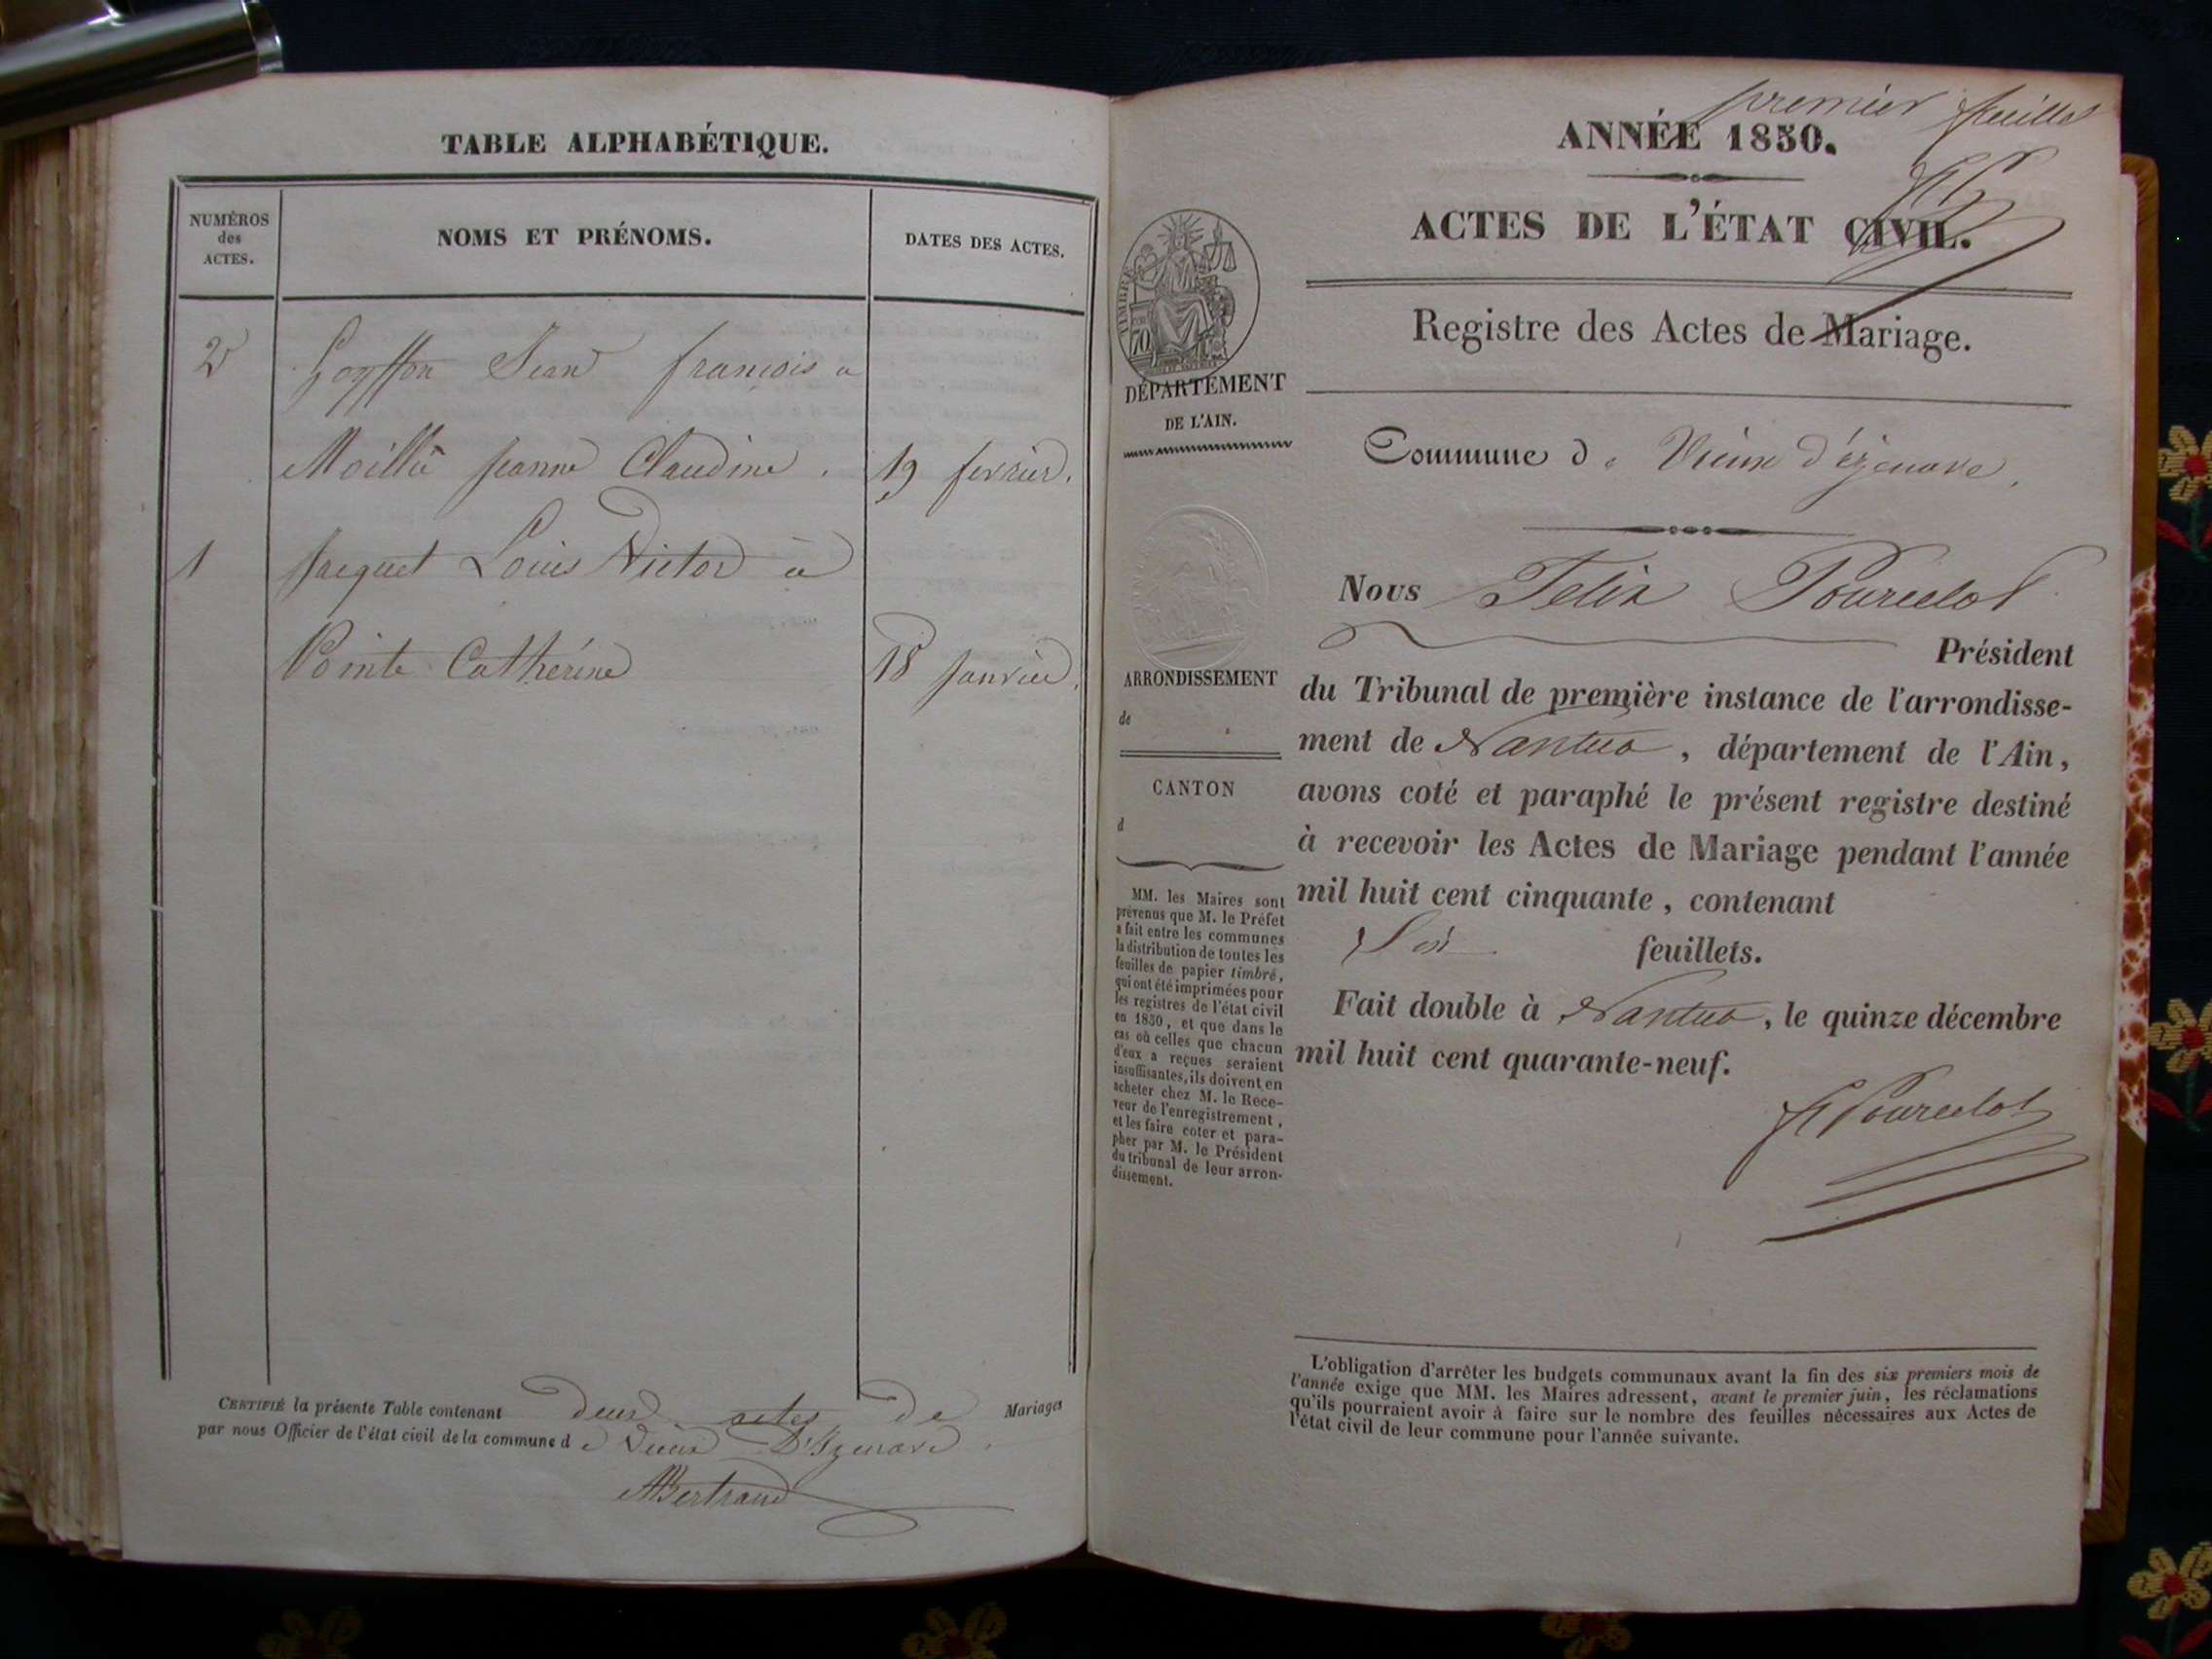 TABLE ALPHABÉTIQUE.
NUMÉROS
des
ACTES.
NOMS ET PRÉNOMS.
DATES DES ACTES.
2 Goyffon Jean françois a
Moillia jeanne Claudine. 19 fevrier.
1 Jacquet Louis Victor a
Pointe Cathérine 18 janvier.
CERTIFIÉ la présente Table contenant deux actes de Mariages
par nous Officier de l'état civil de la commune de Vieux D'Izenave.
ABertrand
premier feuillet
ANNÉE 1850.
ACTES DE L'ÉTAT CIVIL.
Registre des Actes de Mariage.
TIMBRE
70
DÉPARTEMENT
DE L'AIN.
Commune de Vieux d'izenave.
ARRONDISSEMENT
de
CANTON
d
MM. les Maires sont
prévenus que M. le Préfet
a fait entre les communes
la distribution de toutes les
feuilles de papier timbré,
qui ont été imprimées pour
les registres de l'état civil
en 1850, et que dans le
cas où celles que chacun
d'eux a reçues seraient
insuffisantes, ils doivent en
acheter chez M. le Rece-
veur de l'enregistrement,
et les faire coter et para-
pher par M. le Président
du tribunal de leur arron-
dissement.
Nous Felix Pourcelot
Président
du Tribunal de première instance de l'arrondisse-
ment de Nantua, département de l'Ain,
avons coté et paraphé le présent registre destiné
à recevoir les Actes de Mariage pendant l'année
mil huit cent cinquante, contenant
Six feuillets.
Fait double à Nantua, le quinze décembre
mil huit cent quarante-neuf.
Pourcelot
L'obligation d'arrêter les budgets communaux avant la fin des six premiers mois de
l'année exige que MM. les Maires adressent, avant le premier juin, les réclamations
qu'ils pourraient avoir à faire sur le nombre des feuilles nécessaires aux Actes de
l'état civil de leur commune pour l'année suivante.